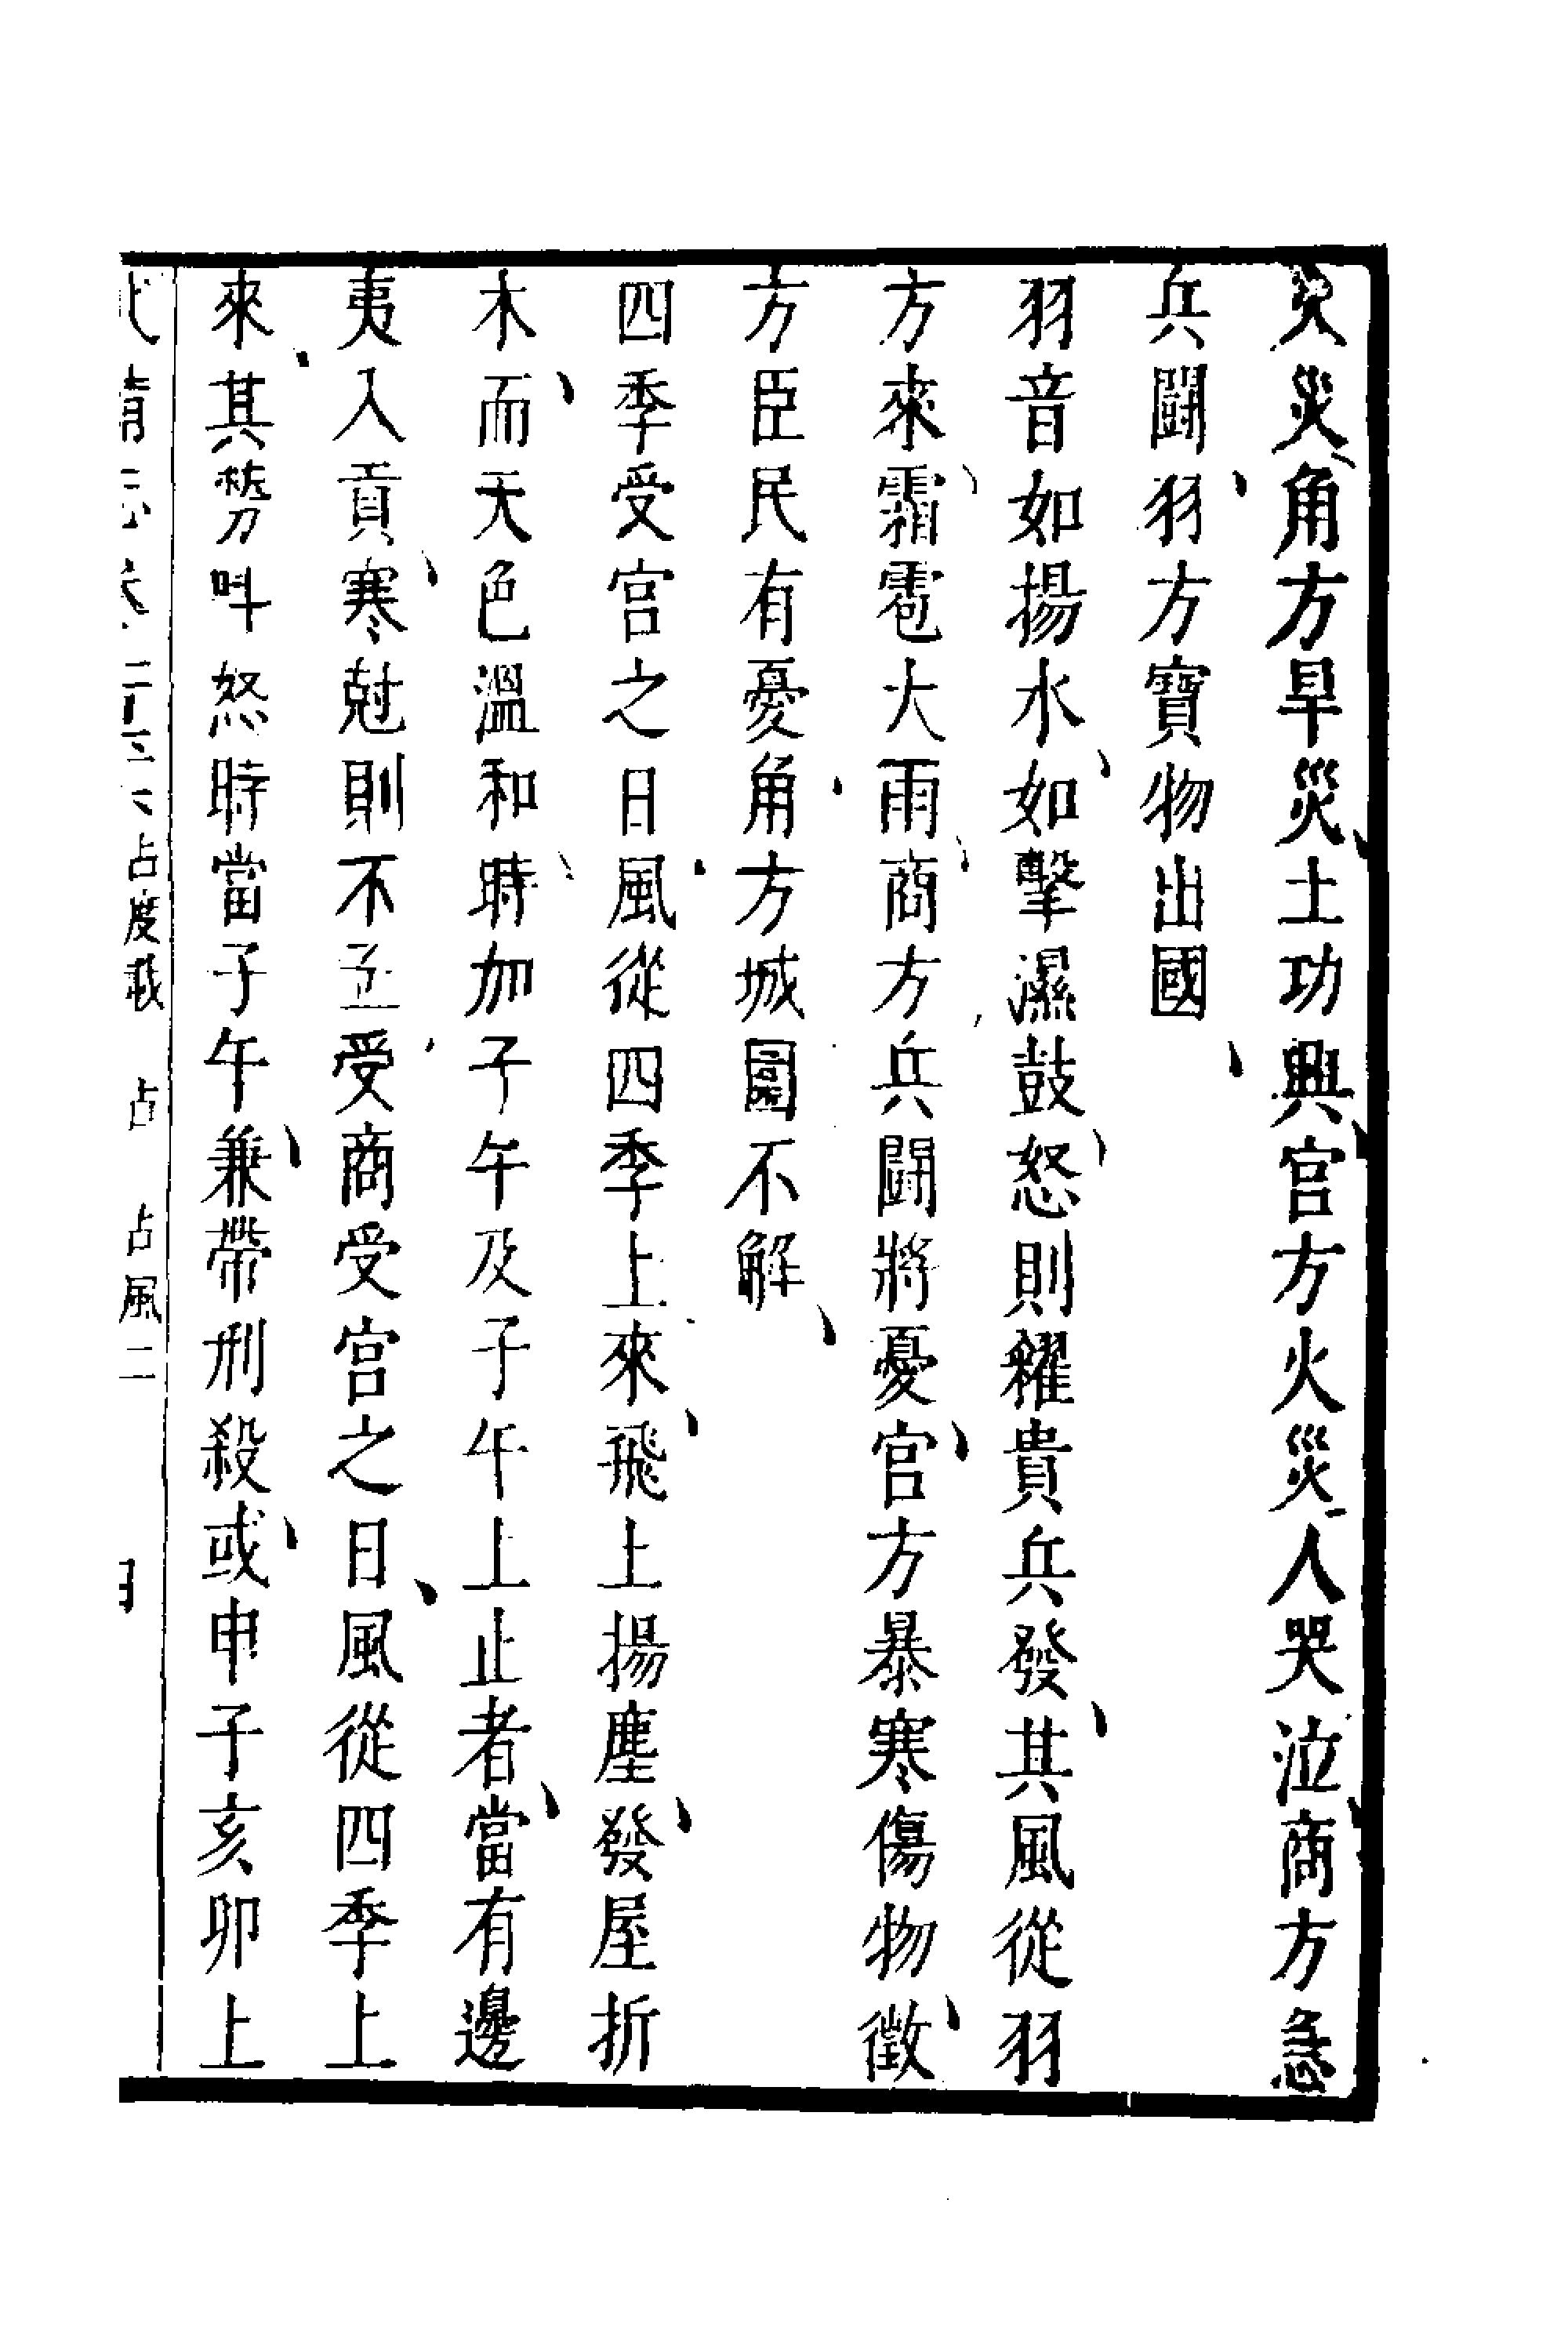 火災角方旱災土功興宮方火災人哭泣商方急
兵鬪羽方寶物出國
羽音如揚水如擊濕鼓怒則糴貴兵發其風從羽
方來霜雹大雨商方兵鬪將憂宮方暴寒傷物徵
方臣民有憂角方城圍不解
四季受宮之日風從四季上來飛土揚塵發屋折
木而天色溫和時加子午及子午上止者當有邊
夷入貢寒尅則不至受商受宮之日風從四季上
來其勢叫怒時當子午兼帶刑殺或申子亥卯上
武備志卷一百六十六占度載 占 占風二 四